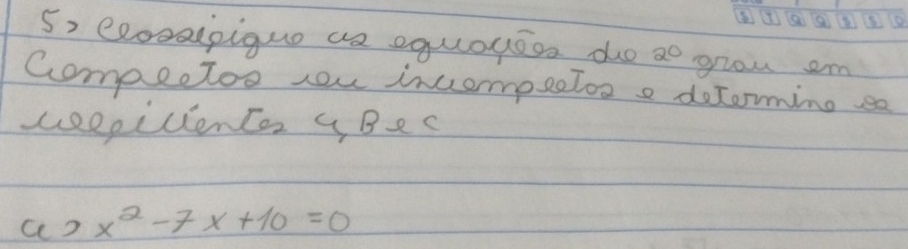 5) Classifique as equações do 2º grau em
Completas ou incompletas e determine os
coeficientes a, B e C
a) x² - 7x + 10 = 0